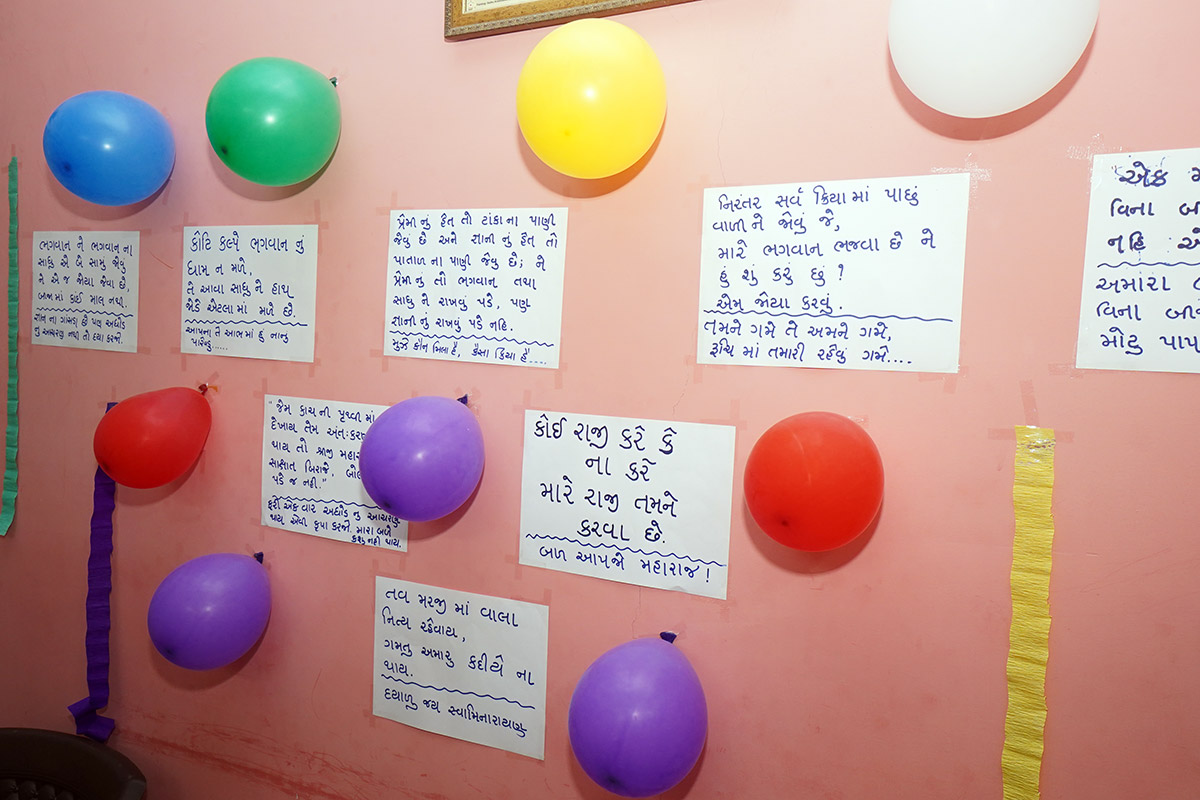 ભગવાન ને ભગવાન ના
સાધુ એ બે સામું જોવું
ને એ જ જોયા જેવા છે,
બીજામાં કાંઈ માલ નથી.
જ્ઞાન ના ગાસડા છે પણ
નુ આચરણ નથી તો દયા કરજો.
કોટિ કલ્પે ભગવાન નું
ધામ ન મળે,
તે આવા સાધુ ને હાથ
જોડે એટલામાં મળે છે.
આપના તે આભમાં હું નાનું
પારેવડું......
પ્રેમી નું હેત તો ટાંકા ના પાણી
જેવું છે અને જ્ઞાની નું હેત તો
પાતાળ ના પાણી જેવુ છે; ને
પ્રેમી નું તો ભગવાન તથા
સાધુ ને રાખવું પડે, પણ
જ્ઞાની નું રાખવું પડે નહિ.
મુઝે કૌન મિલા હૈ, કૈસા કિયા હૈ....
નિરંતર સર્વ ક્રિયામાં પાછું
વાળી ને જોવું જે,
મારે ભગવાન ભજવા છે ને
હું શું કરુ છું ?
એમ જોયા કરવું.
તમને ગમે તે અમને ગમે,
રૂચિ માં તમારી રહેવું ગમે....
એક
વિના બી
નહિ એ
અમારા
વિના બીજ
મોટુ પાપ
"જેમ કાચ ની પૃથ્વી માં
દેખાય તેમ અંતઃકરણ
થાય તો શ્રીજી મહારા
સાક્ષાત બિરાજે. બોલ
પડે જ નહી."
ફરી એક વાર નુ આચરણ
થાય એવી કૃપા કરજો. મારા બળે
કશુ નહી થાય.
કોઈ રાજી કરે કે
ના કરે
મારે રાજી તમને
કરવા છે.
બળ આપજો મહારાજ !
તવ મરજી માં વાલા
નિત્ય રહેવાય,
ગમતુ અમારુ કદીયે ના
થાય.
દયાળુ જય સ્વામિનારાયણ